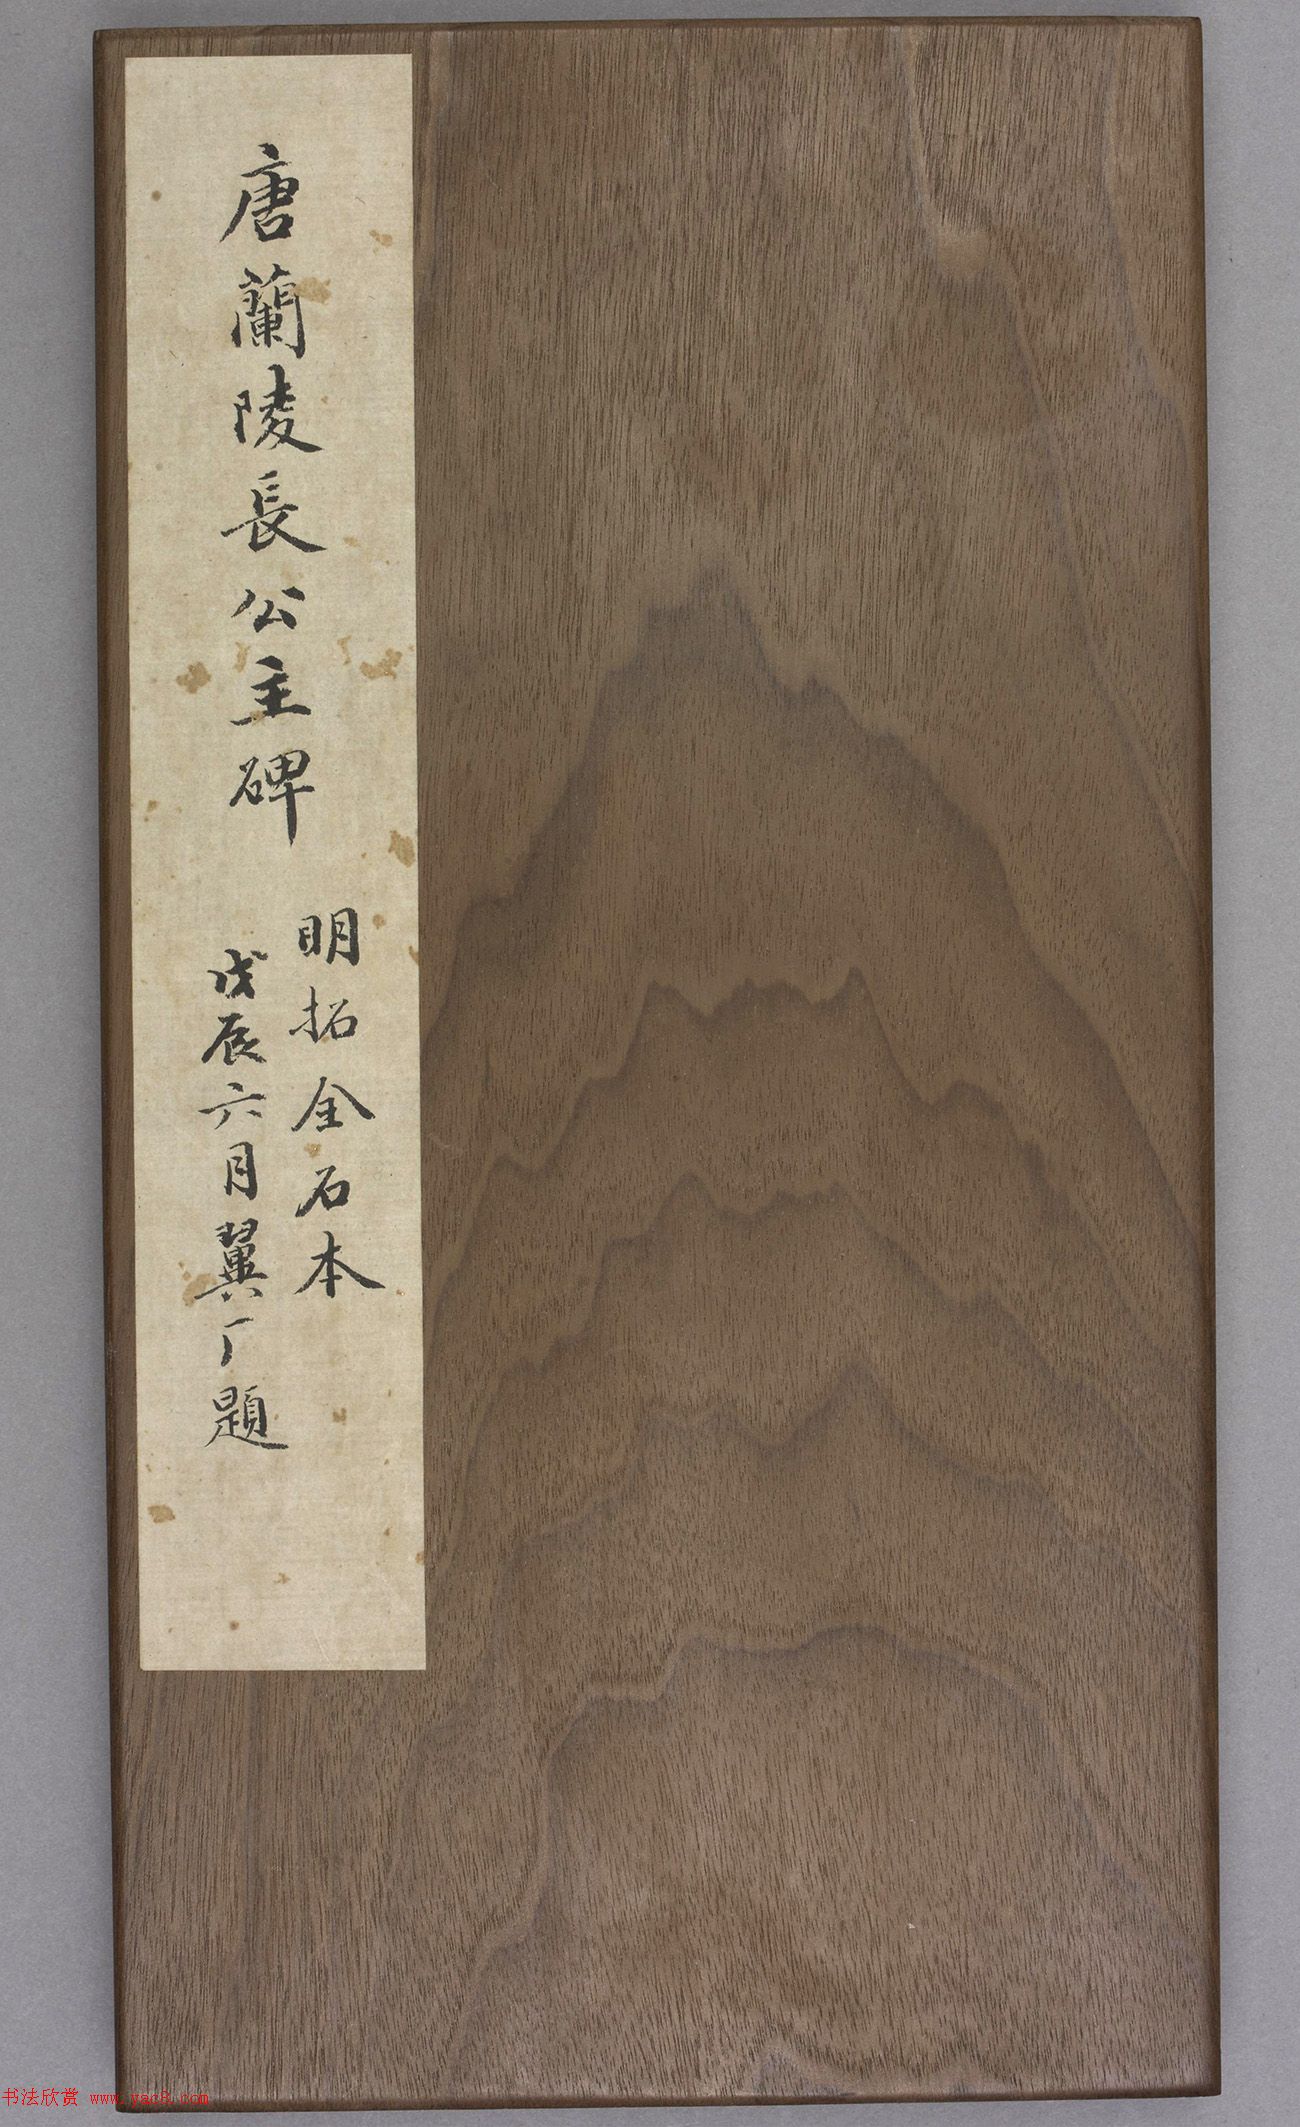 唐蘭陵長公主碑
明拓全石本
戊辰六月翼厂題
书法欣赏 www.yac8.com